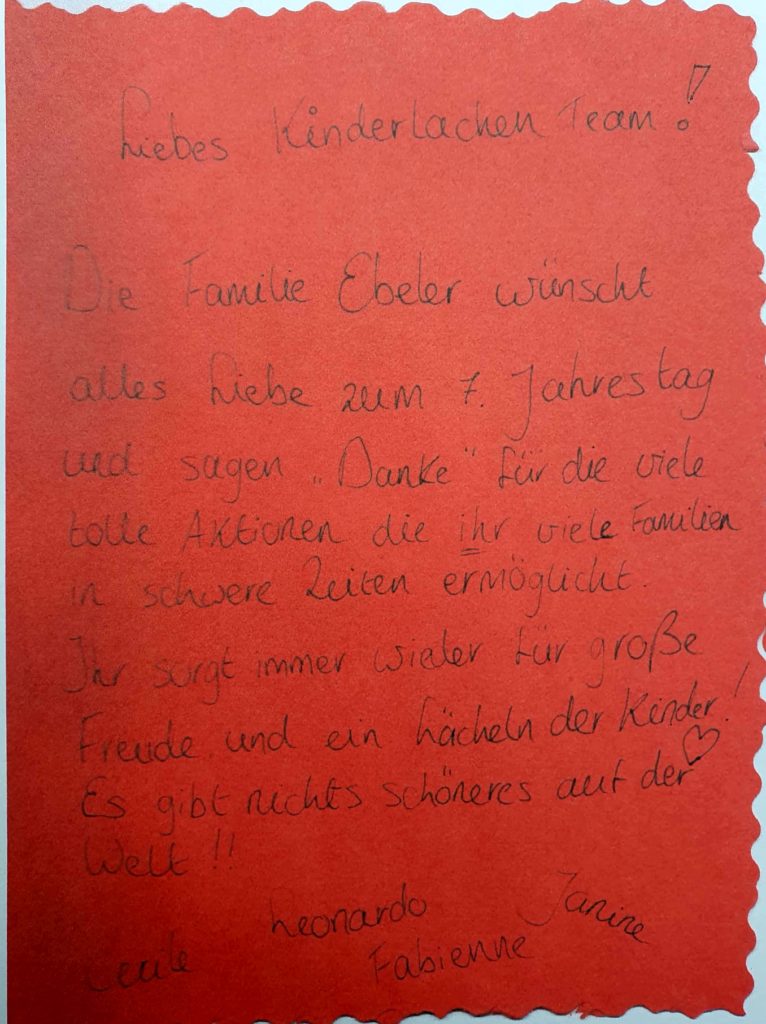 Liebes Kinderlachen Team!
Die Familie Ebeler wünscht
alles Liebe zum 7. Jahrestag
und sagen „Danke" für die viele
tolle Aktionen die ihr viele Familien
in schwere Zeiten ermöglicht.
Ihr sorgt immer wieder für große
Freude und ein Lächeln der Kinder!
Es gibt nichts schöneres auf der
Welt!!
Leonardo Janine
Cecile Fabienne